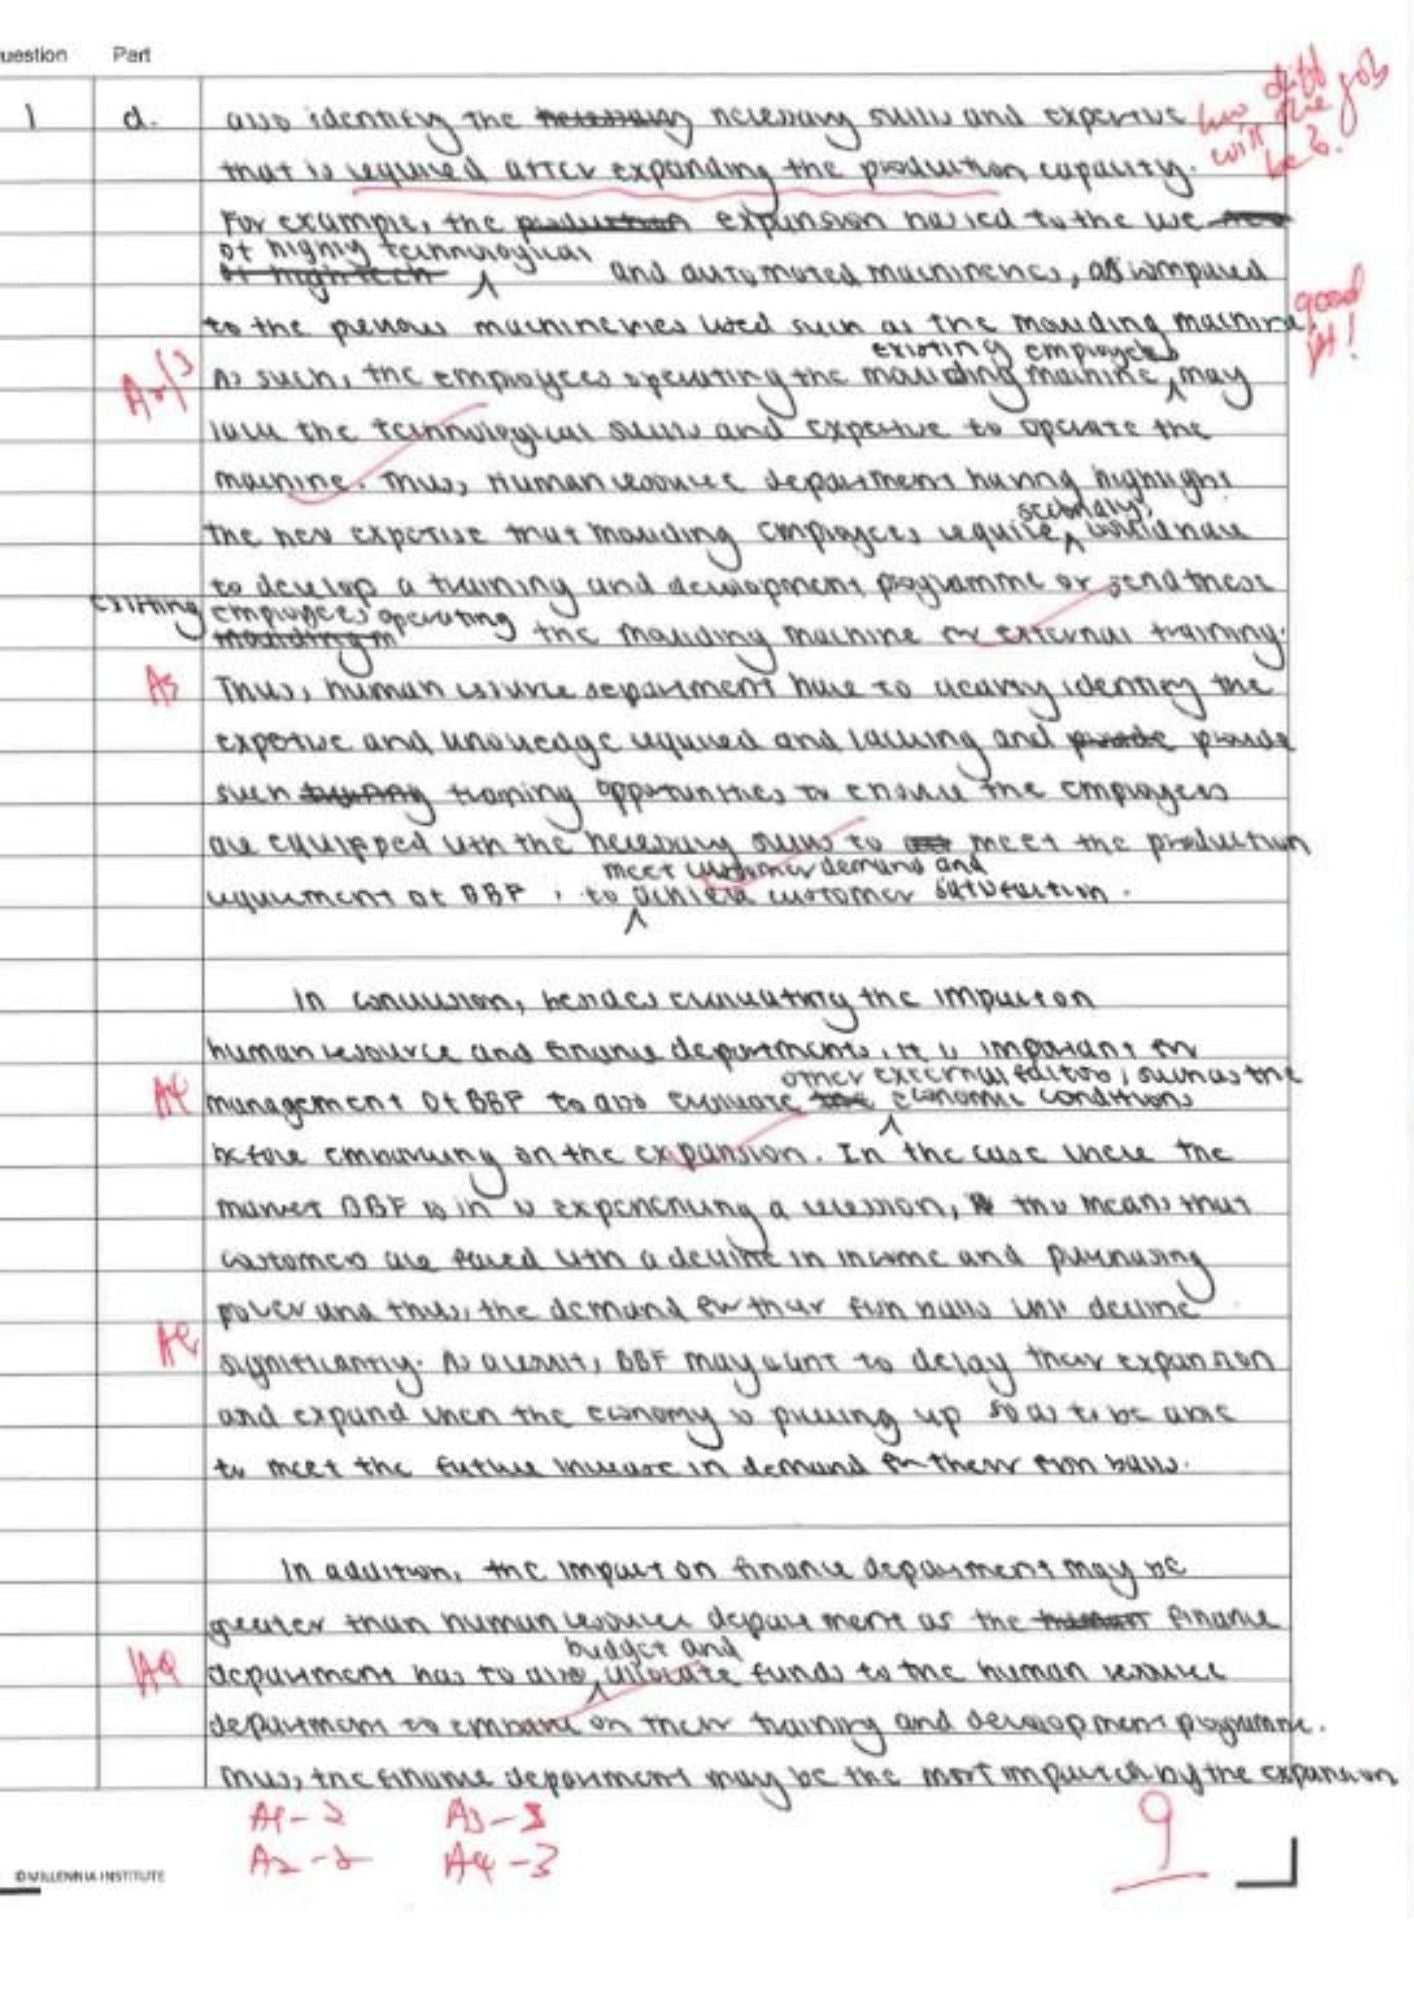 Question Part
1 d. also identify the necessary necessary skills and expertise
that is required after expanding the production capacity.
how diff will the job be?
For example, the production expansion has led to the use
of highly technological
of high tech and automated machineries, as compared
to the previous machineries used such as the moulding machine.
good pt!
existing employees
A2/3 As such, the employees operating the moulding machine, may
lack the technological skills and expertise to operate the
machine. Thus, Human resource department having highlight
secondly,
the new expertise that moulding employees require would have
to develop a training and development programme or send these
existing employees operating
moulding m the moulding machine for external training.
A3 Thus, human resource department have to clearly identify the
expertise and knowledge required and lacking and provide provide
such training training opportunities to ensure the employees
are equipped with the necessary skills to meet the production
meet customer demand and
requirement of BBF, to achieve customer satisfaction.
In conclusion, besides evaluating the impact on
human resource and finance departments, it is important for
other external factors, such as the
A4 management of BBF to also evaluate the economic conditions
before embarking on the expansion. In the case where the
market BBF is in is experiencing a recession, this means that
customers are faced with a decline in income and purchasing
power and thus, the demand for their fish balls will decline
A4 significantly. As a result, BBF may want to delay their expansion
and expand when the economy is picking up so as to be able
to meet the future increase in demand for their fish balls.
In addition, the impact on finance department may be
greater than human resource department as the human finance
budget and
A4 department has to also allocate funds to the human resource
department to embark on their training and development programme.
Thus, the finance department may be the most impacted by the expansion
A1-2 A3-3
A2-2 A4-3
9
© MILLENNIA INSTITUTE